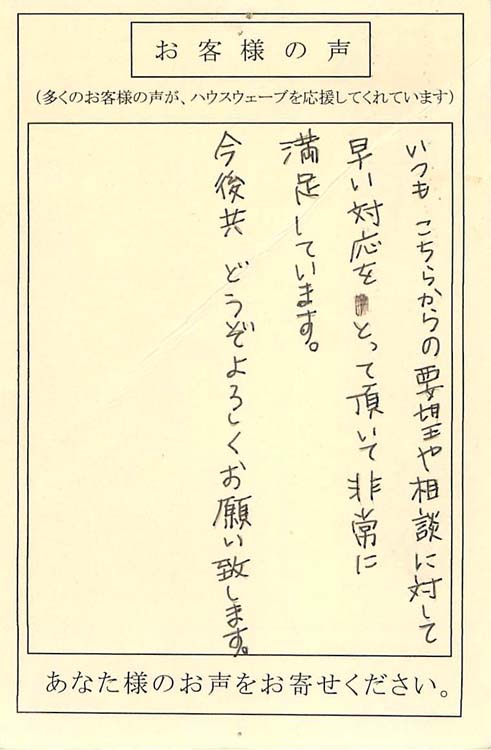 お客様の声
（多くのお客様の声が、ハウスウェーブを応援してくれています）
いつもこちらからの要望や相談に対して
早い対応をとって頂いて非常に
満足しています。
今後共どうぞよろしくお願い致します。
あなた様のお声をお寄せください。